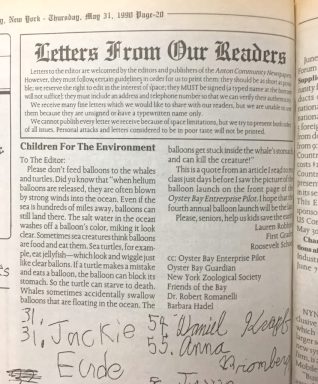 New York - Thursday, May 31, 1990 Page-20
Letters From Our Readers
Letters to the editor are welcomed by the editors and publishers of the Anton Community Newspapers.
However, they must follow certain guidelines in order for us to print them: they should be as short as possible;
we reserve the right to edit in the interest of space; they MUST be signed (a typed name at the bottom
will not suffice); they must include an address and telephone number so that we can verify their authenticity.
We receive many fine letters which we would like to share with our readers, but we are unable to use
them because they are unsigned or have a typewritten name only.
We cannot publish every letter we receive because of space limitations, but we try to present both sides
of all issues. Personal attacks and letters considered to be in poor taste will not be printed.
Children For The Environment
To The Editor:
Please don't feed balloons to the whales
and turtles. Did you know that "when helium
balloons are released, they are often blown
by strong winds into the ocean. Even if the
sea is hundreds of miles away, balloons can
still land there. The salt water in the ocean
washes off a balloon's color, making it look
clear. Sometimes sea creatures think balloons
are food and eat them. Sea turtles, for exam-
ple, eat jellyfish—which look and wiggle just
like clear balloons. If a turtle makes a mistake
and eats a balloon, the balloon can block its
stomach. So the turtle can starve to death.
Whales sometimes accidentally swallow
balloons that are floating in the ocean. The
balloons get stuck inside the whale's stomach
and can kill the creature!"
This is a quote from an article I read to my
class just days before I saw the picture of the
balloon launch on the front page of the
Oyster Bay Enterprise Pilot. I hope that the
fourth annual balloon launch will be the last.
Please, seniors, help us kids save the earth.
Lauren
First Grade
Roosevelt School
cc: Oyster Bay Enterprise Pilot
Oyster Bay Guardian
New York Zoological Society
Friends of the Bay
Dr. Robert Romanelli
Barbara Hadel
31.
31. Jackie
54. Daniel
55. Anna